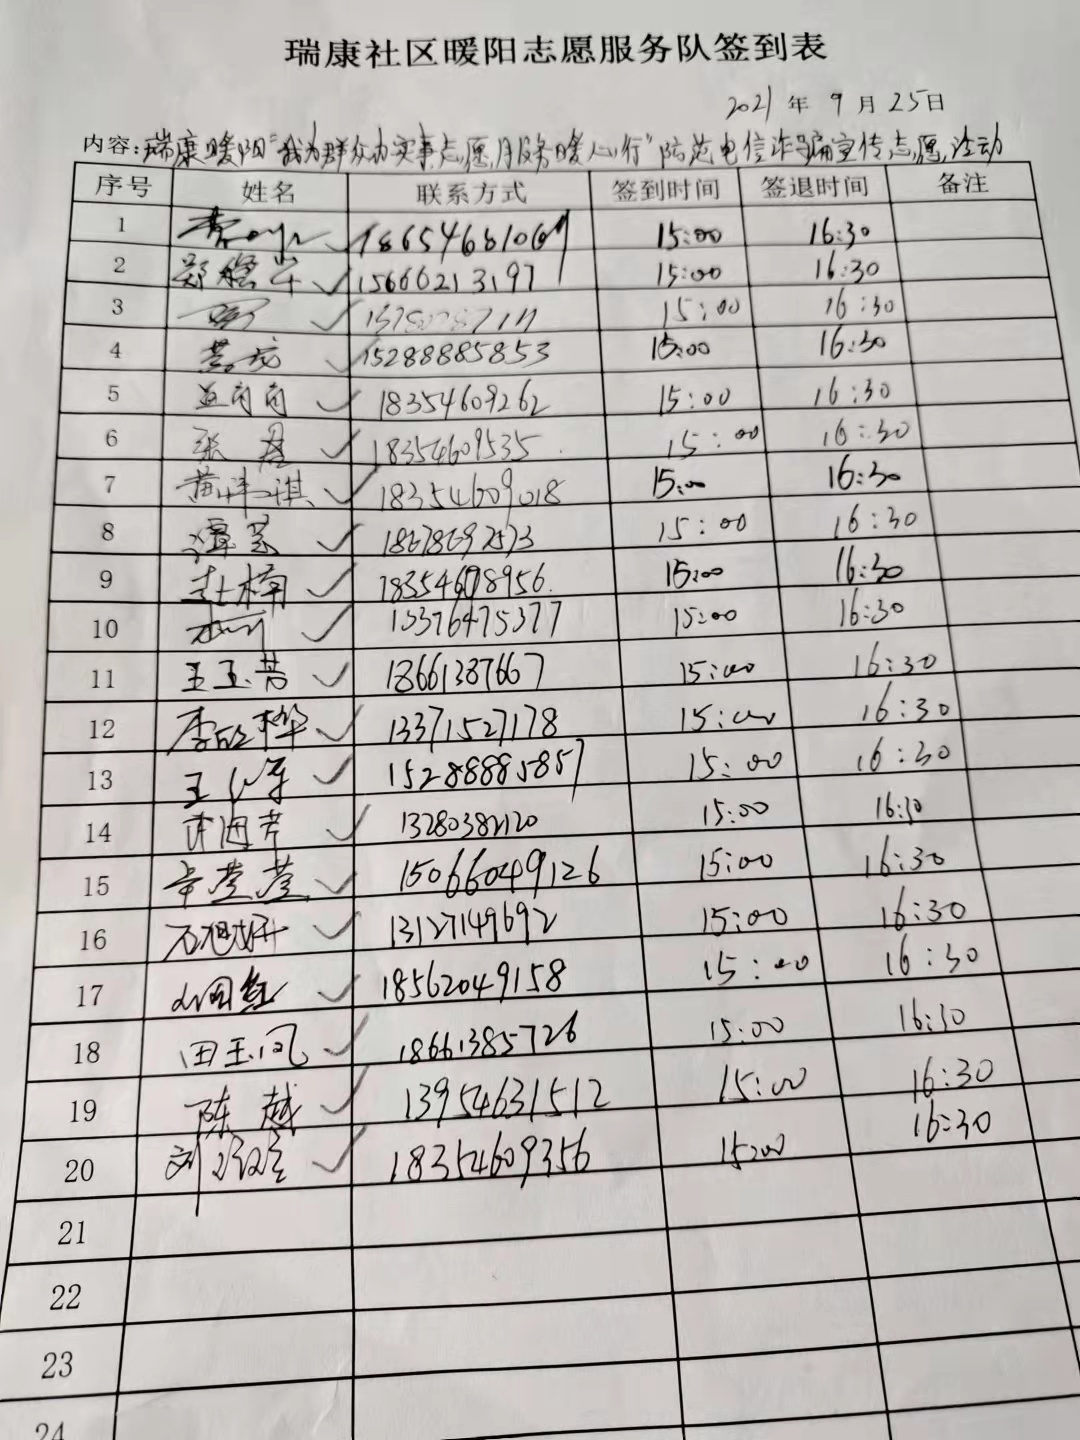 瑞康社区暖阳志愿服务队签到表
2021年9月25日
内容:瑞康暖阳"我为群众办实事志愿月服务暖人心行"防范电信诈骗宣传志愿活动
序号 姓名 联系方式 签到时间 签退时间 备注
1 18654681069 15:00 16:30
2 15666213197 15:00 16:30
3 15:00 16:30
4 15288885853 15:00 16:30
5 18354609262 15:00 16:30
6 张 18354609535 15:00 16:30
7 18354609018 15:00 16:30
8 谭 18678692573 15:00 16:30
9 杜楠 15:00 16:30
10 13376475377 15:00 16:30
11 王玉芳 18661387667 15:00 16:30
12 李欣桦 13371527178 15:00 16:30
13 王 15288885857 15:00 16:30
14 海芹 15:00 16:30
15 辛莹莹 15066049126 15:00 16:30
16 石旭妍 13127149692 15:00 16:30
17 18562049158 15:00 16:30
18 田玉凤 18661385726 15:00 16:30
19 陈越 13954631512 15:00 16:30
20 刘 18354609356 15:00 16:30
21
22
23
24